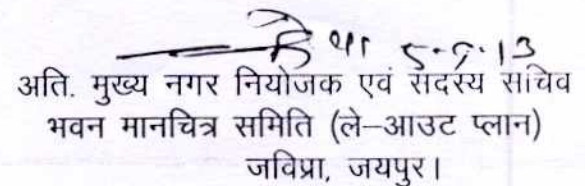 5.9.13
अति. मुख्य नगर नियोजक एवं सदस्य सचिव
भवन मानचित्र समिति (ले–आउट प्लान)
जविप्रा, जयपुर।